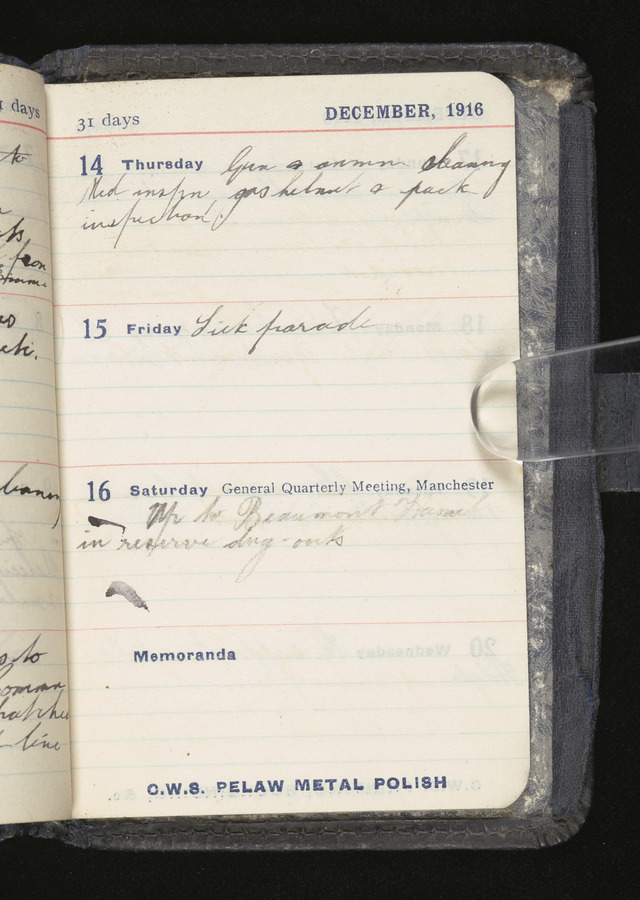 1 days
to
from
31 days DECEMBER, 1916
14 Thursday Gun & ammn cleaning
Med inspn gas helmet & pack
inspection.
15 Friday Sick parade
16 Saturday General Quarterly Meeting, Manchester
Up to Beaumont Hamel
in reserve dug-outs
Memoranda
to
line
C.W.S. PELAW METAL POLISH